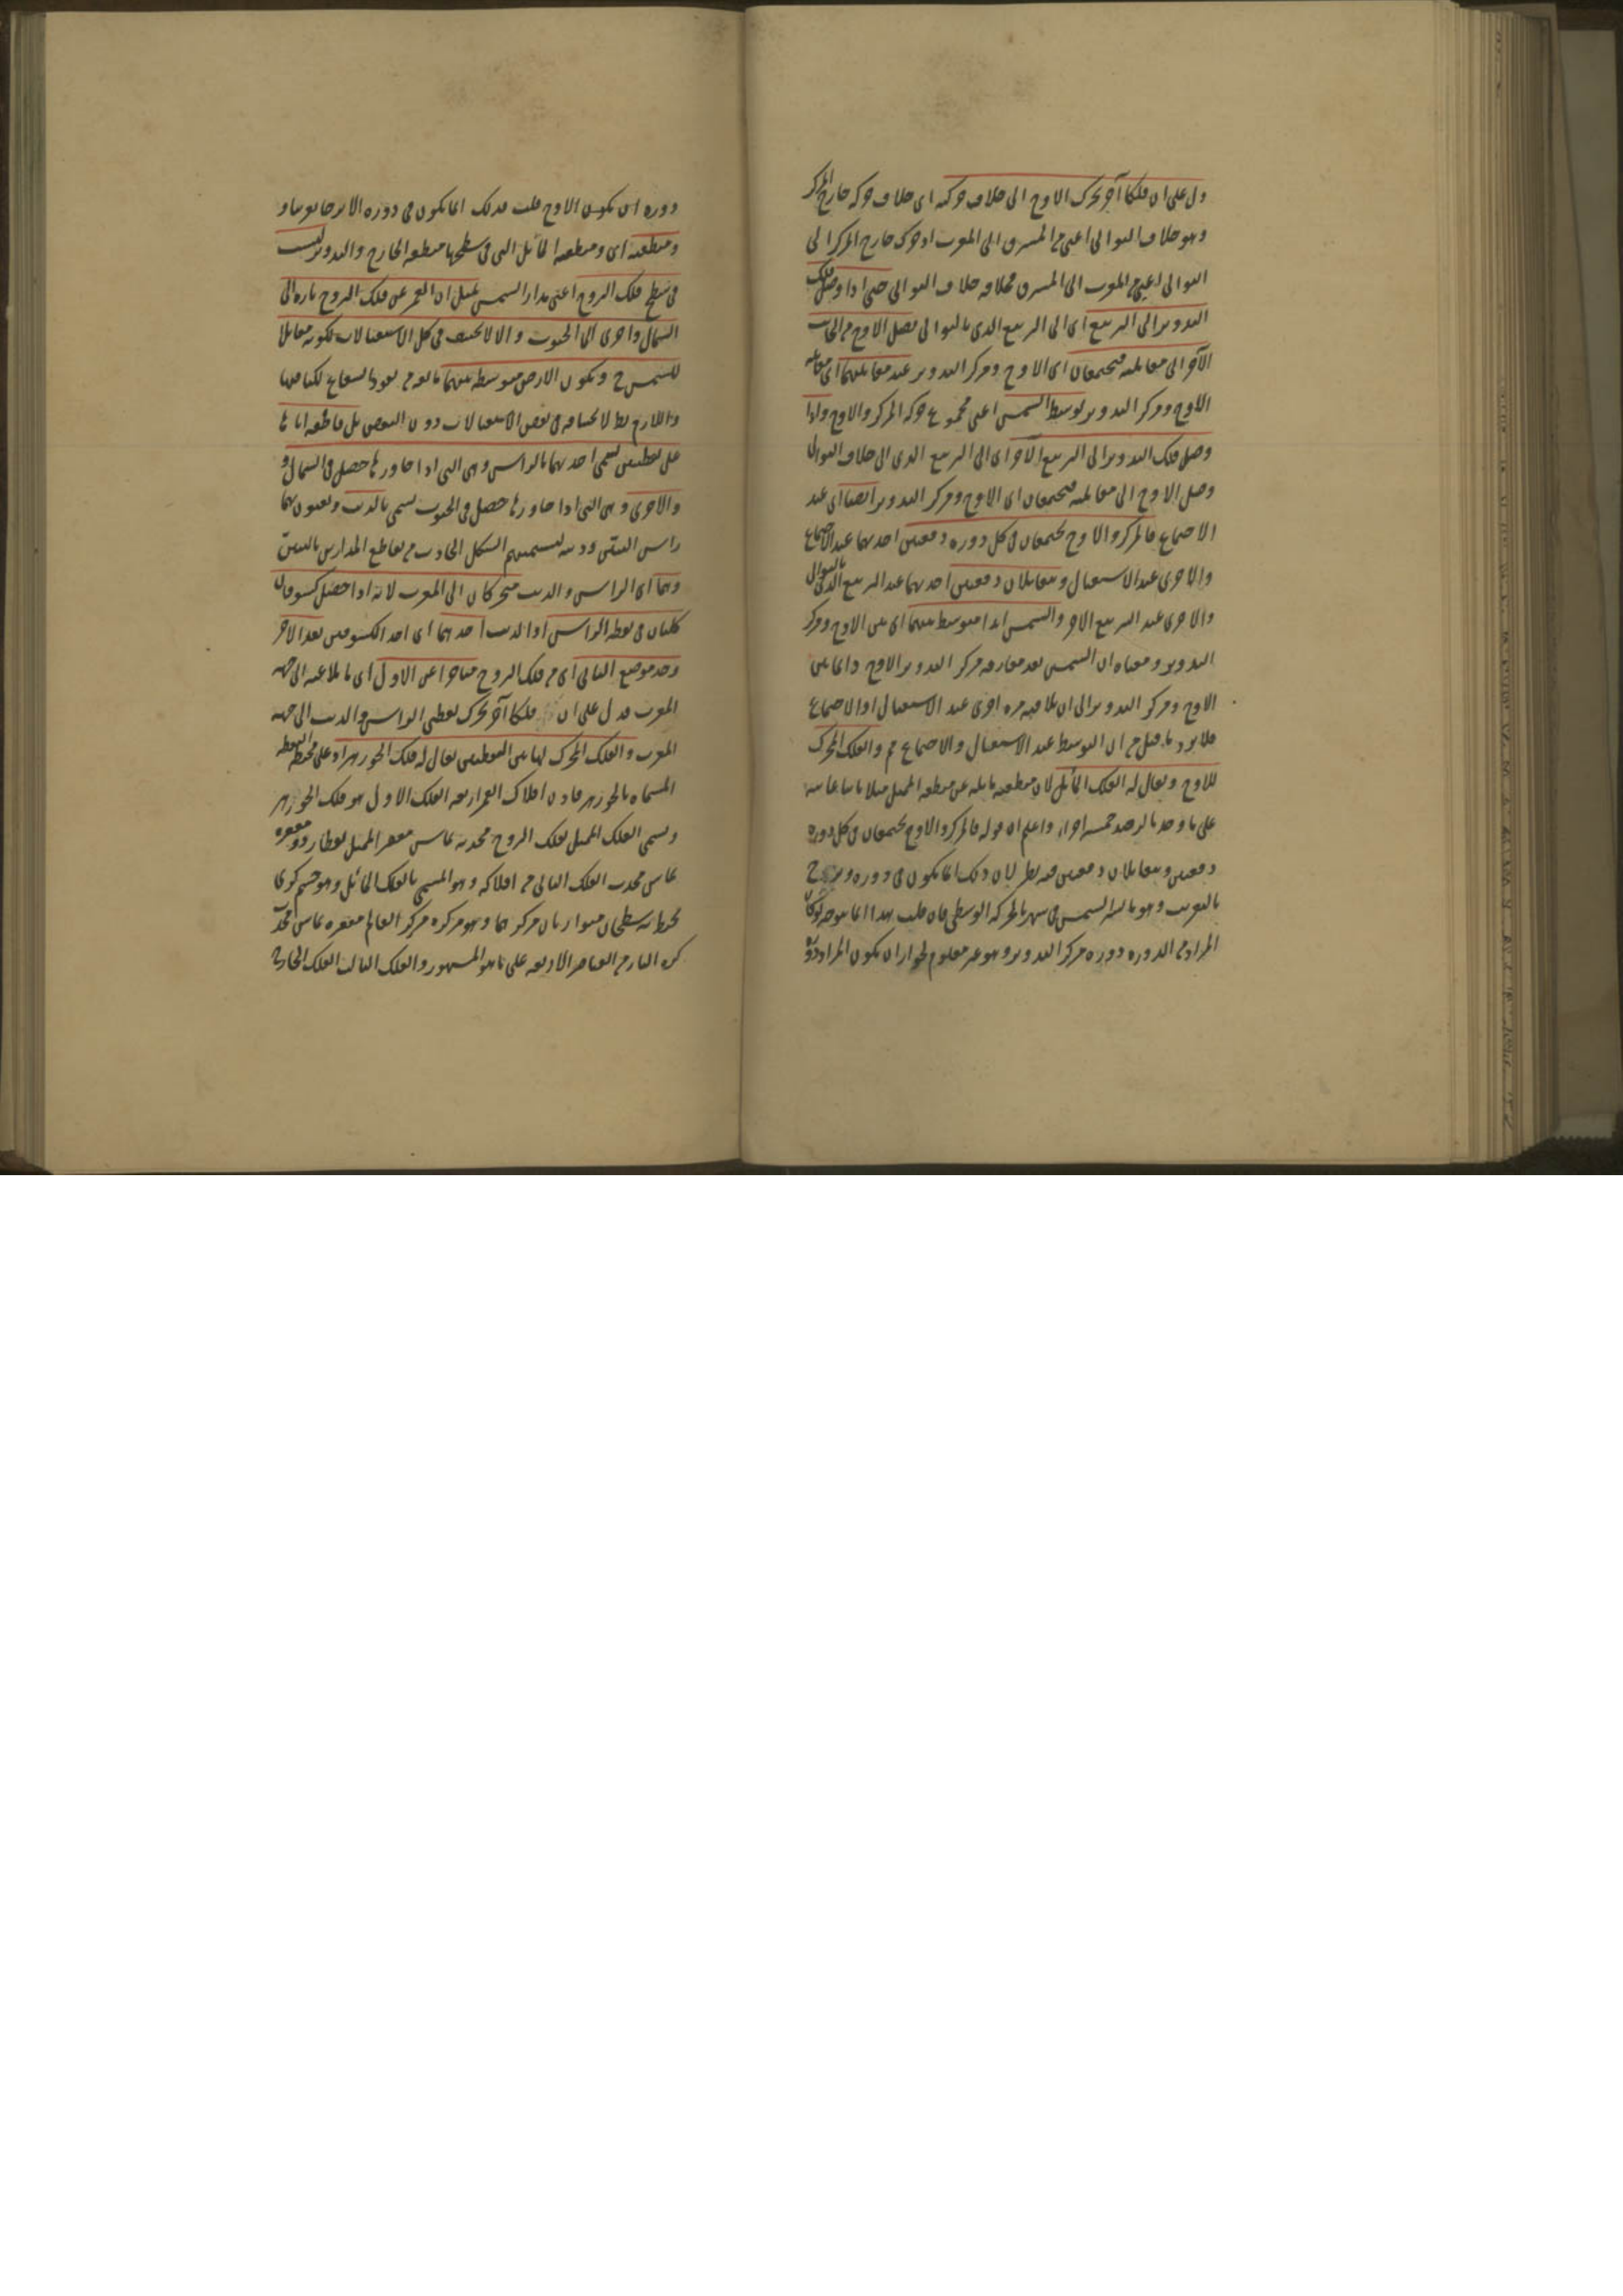 دل على ان فلكا آخر يحرك الاوج الى خلاف حركته اى خلاف حركة خارج المركز
وهو خلاف التوالى اعنى من المشرق الى المغرب اذ حركة خارج المركز الى
التوالى اعنى من المغرب الى المشرق فخلافه خلاف التوالى حتى اذا وصل فلك
التدوير الى التربيع اى الى التربيع الذى بالتوالى يصل الاوج من الجانب
الآخر الى مقابلته فيجتمعان اى الاوج ومركز التدوير عند مقابلتهما اى مقابلة
الاوج ومركز التدوير لوسط الشمس اعنى مجموع حركة المركز والاوج واذا
وصل فلك التدوير الى التربيع الآخر اى الى التربيع الذى الى خلاف التوالى
وصل الاوج الى مقابلته فيجتمعان اى الاوج ومركز التدوير ايضا اى عند
الاجتماع فالمركز والاوج يجتمعان فى كل دورة دفعتين احديهما عند الاجتماع
والاخرى عند الاستقبال ويتقابلان دفعتين احديهما عند التربيع الذى بالتوالى
والاخرى عند التربيع الاخر والشمس ابدا متوسط بينهما اى بين الاوج ومركز
التدوير ومعناه ان الشمس بعد مفارقة مركز التدوير الاوج دائما بين
الاوج ومركز التدوير الى ان يلاقيه مرة اخرى عند الاستقبال او الاجتماع
فلا يرد ما قيل من ان التوسط عند الاستقبال والاجتماع مم والفلك المحرك
للاوج ويقال له الفلك المائل لان منطقته مائلة عن منطقة الممثل ميلا ثابتا غايته
على ما وجد بالرصد خمسة اجزاء واعلم ان قوله فالمركز والاوج يجتمعان فى كل دورة
دفعتين ويتقابلان دفعتين فيه نظر لان ذلك انما يكون فى دورة
بالتقريب وهو ما لسير الشمس فى شهر بالحركة الوسطى فان قلت هذا انما يتوجه لو كان
المراد من الدورة دورة مركز التدوير وهو غير معلوم لجواز ان يكون المراد دورة
دورة اى يكون الاوج قلت فذلك انما يكون فى دورة
ومنطقته اى ومنطقة المائل التى فى سطحها منطقة الخارج والتدوير ليست
فى سطح فلك البروج اعنى مدار الشمس لميل ان القمر عن فلك البروج تارة الى
الشمال واخرى الى الجنوب والا لانخسف فى كل الاستقبالات لكونه مقابلا
للشمس ح وتكون الارض متوسطة بينهما مانعة من نفوذ الشعاع لكنا
واللازم بط لانخسافه فى بعض الاستقبالات دون البعض بل قاطعة اياها
على نقطتين تسمى احديهما بالراس وهى التى اذا جاوزها حصل فى الشمال و
والاخرى وهى التى اذا جاوزها حصل فى الجنوب تسمى بالذنب ويعنون بهما
راس التنين وذنبه لتسميتهم الشكل الحادث من تقاطع المدارين بالتنين
وهما اى الراس والذنب متحركان الى المغرب لانه اذا حصل كسوفان
كليان فى نقطة الراس او الذنب احديهما اى احد الكسوفين بعد الآخر
وجد موضع الثانى اى من فلك البروج متاخرا عن الاول اى مائلا عنه الى جهة
المغرب فدل على ان فلكا آخر يحرك نقطتى الراس والذنب الى جهة
المغرب والفلك المحرك لهاتين النقطتين يقال له فلك الجوزهر اذ على محيطه النقطة
المسماة بالجوزهر فاذن افلاك القمر اربعة الفلك الاول هو فلك الجوزهر
ويسمى الفلك الممثل بفلك البروج محدبه يماس مقعر الممثل لعطارد ومقعره
يماس محدب الفلك الثانى من افلاكه وهو المسمى بالفلك المائل وهو جسم كرى
محيط به سطحان متوازيان مركزهما وهو مركزه مركز العالم مقعره يماس محدب
كرة النار من العناصر الاربعة على ما هو المشهور والفلك الثالث الفلك الخارج